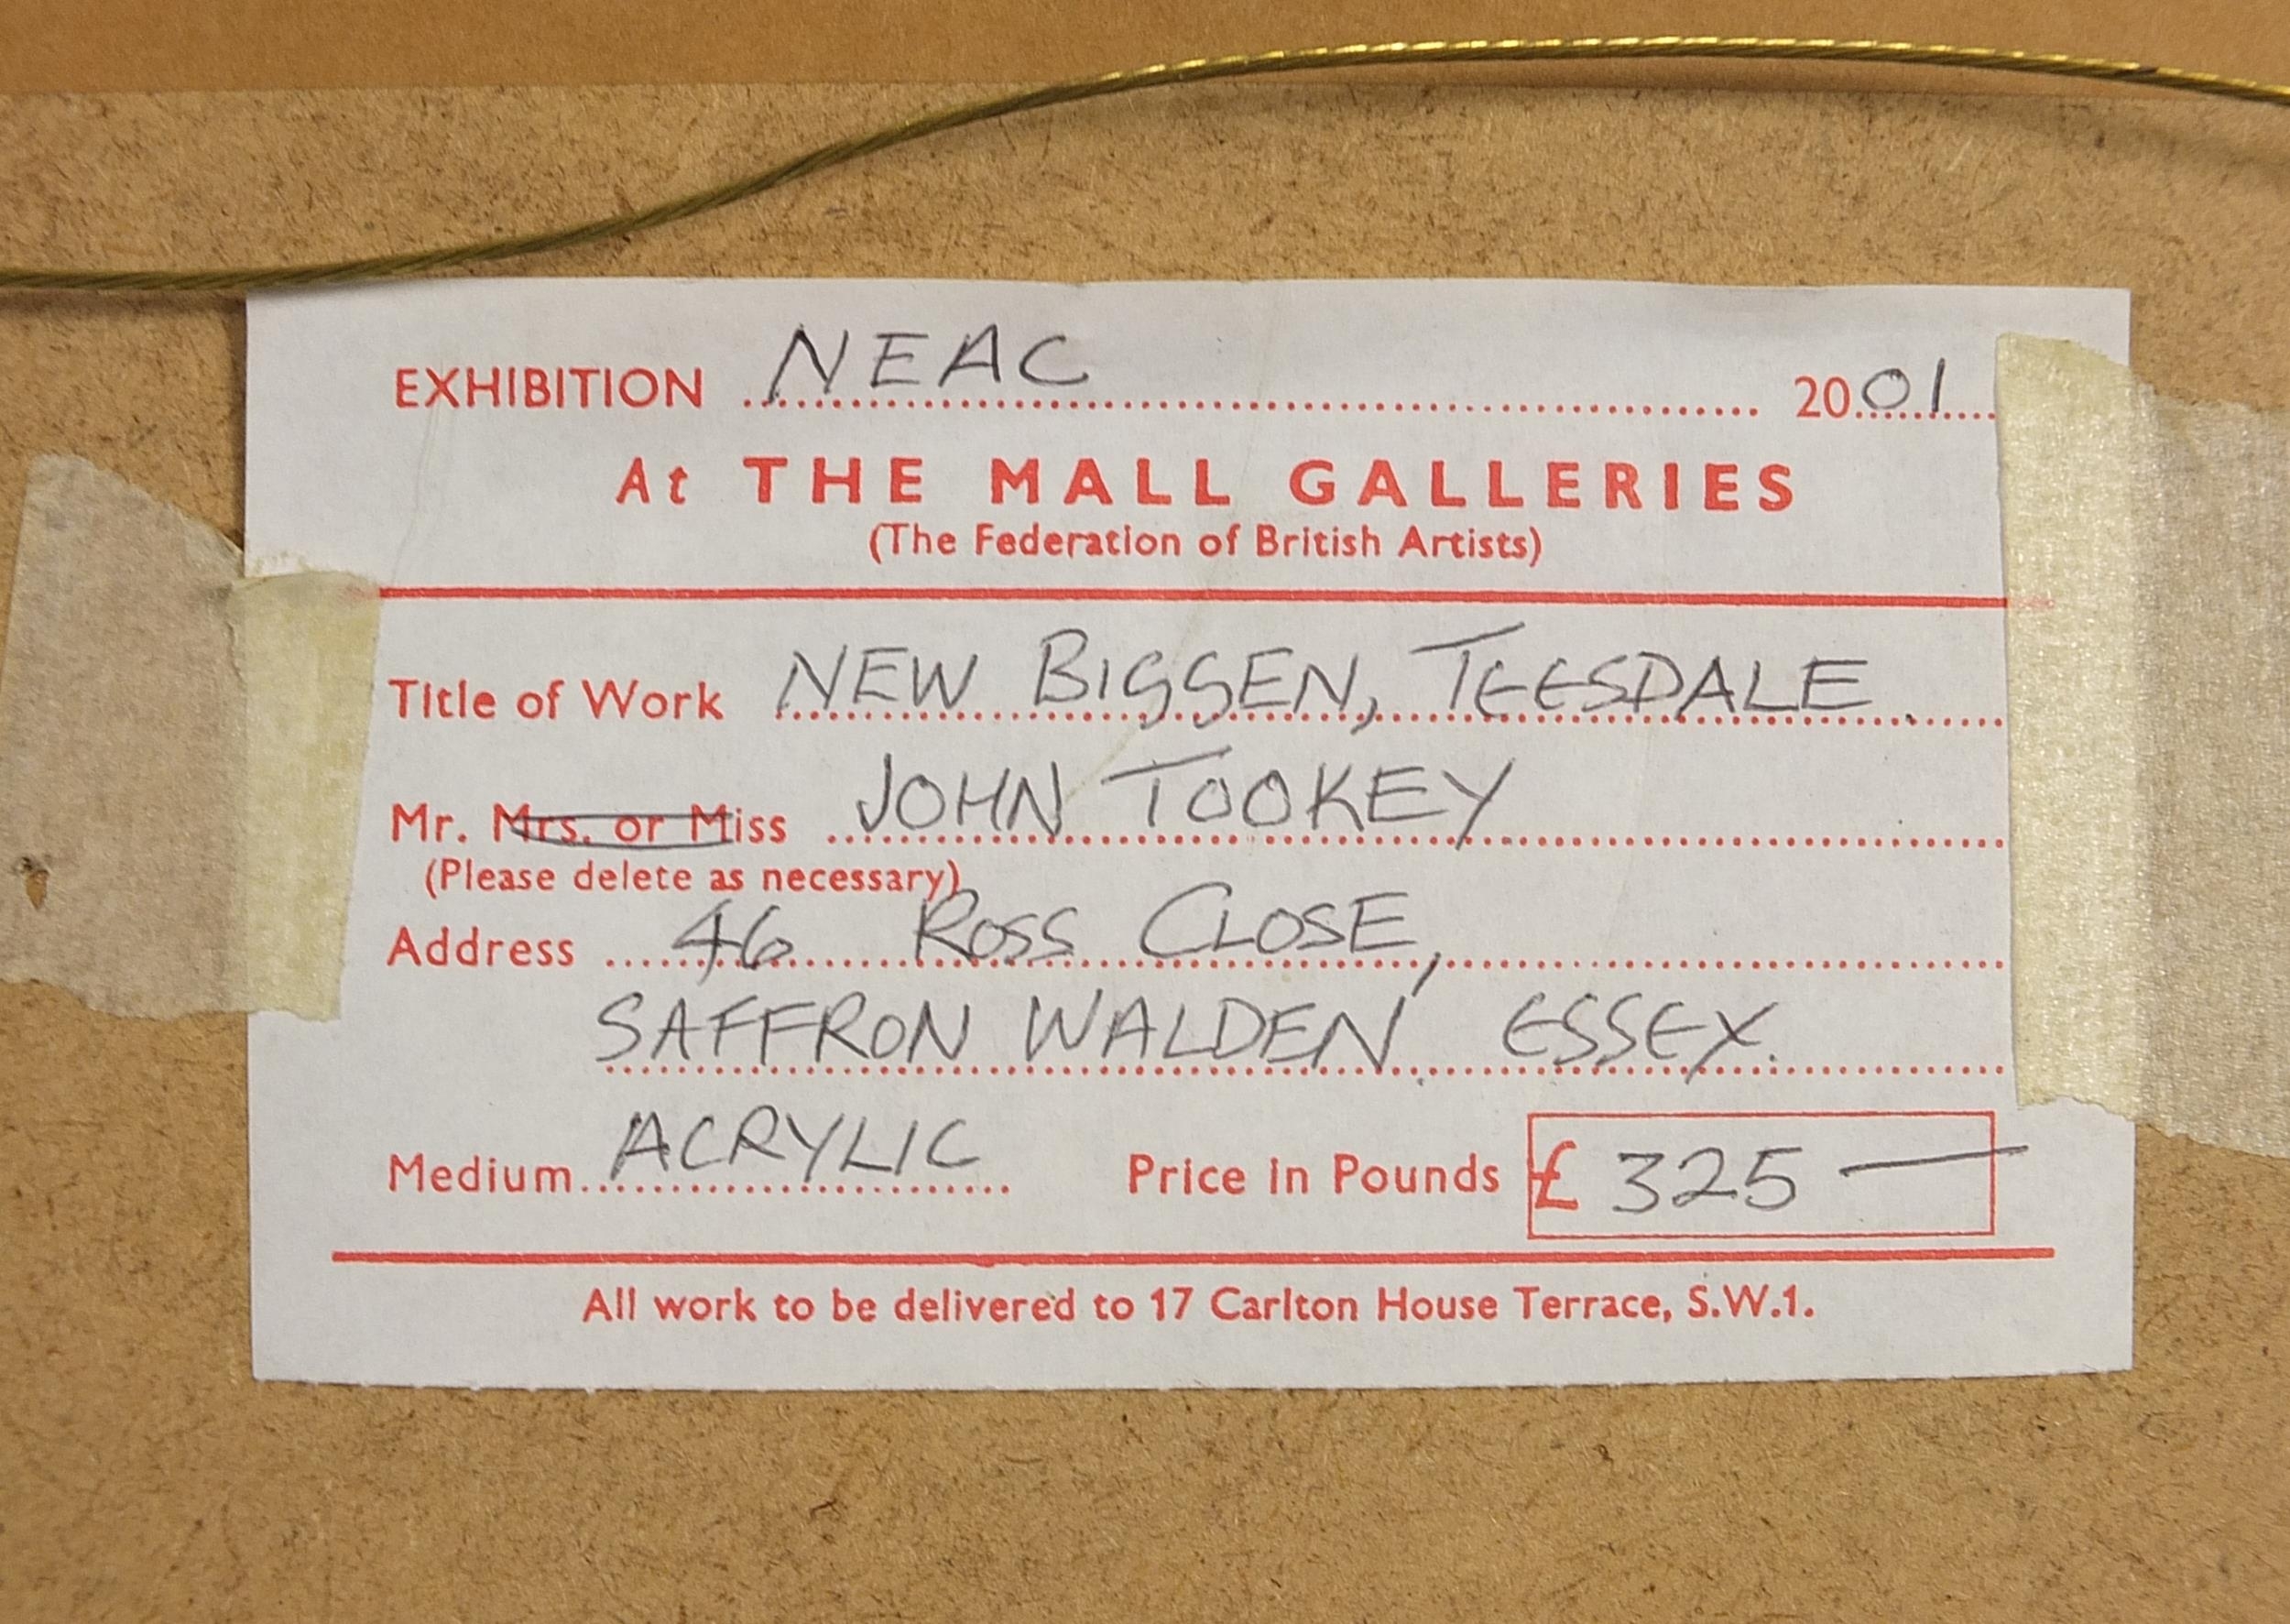 EXHIBITION NEAC 2001
At THE MALL GALLERIES
(The Federation of British Artists)
Title of Work NEW BIGGEN, TEESDALE.
Mr. Mrs. or Miss JOHN TOOKEY
(Please delete as necessary)
Address 46 ROSS CLOSE,
SAFFRON WALDEN, ESSEX.
Medium ACRYLIC Price in Pounds £ 325 —
All work to be delivered to 17 Carlton House Terrace, S.W.1.